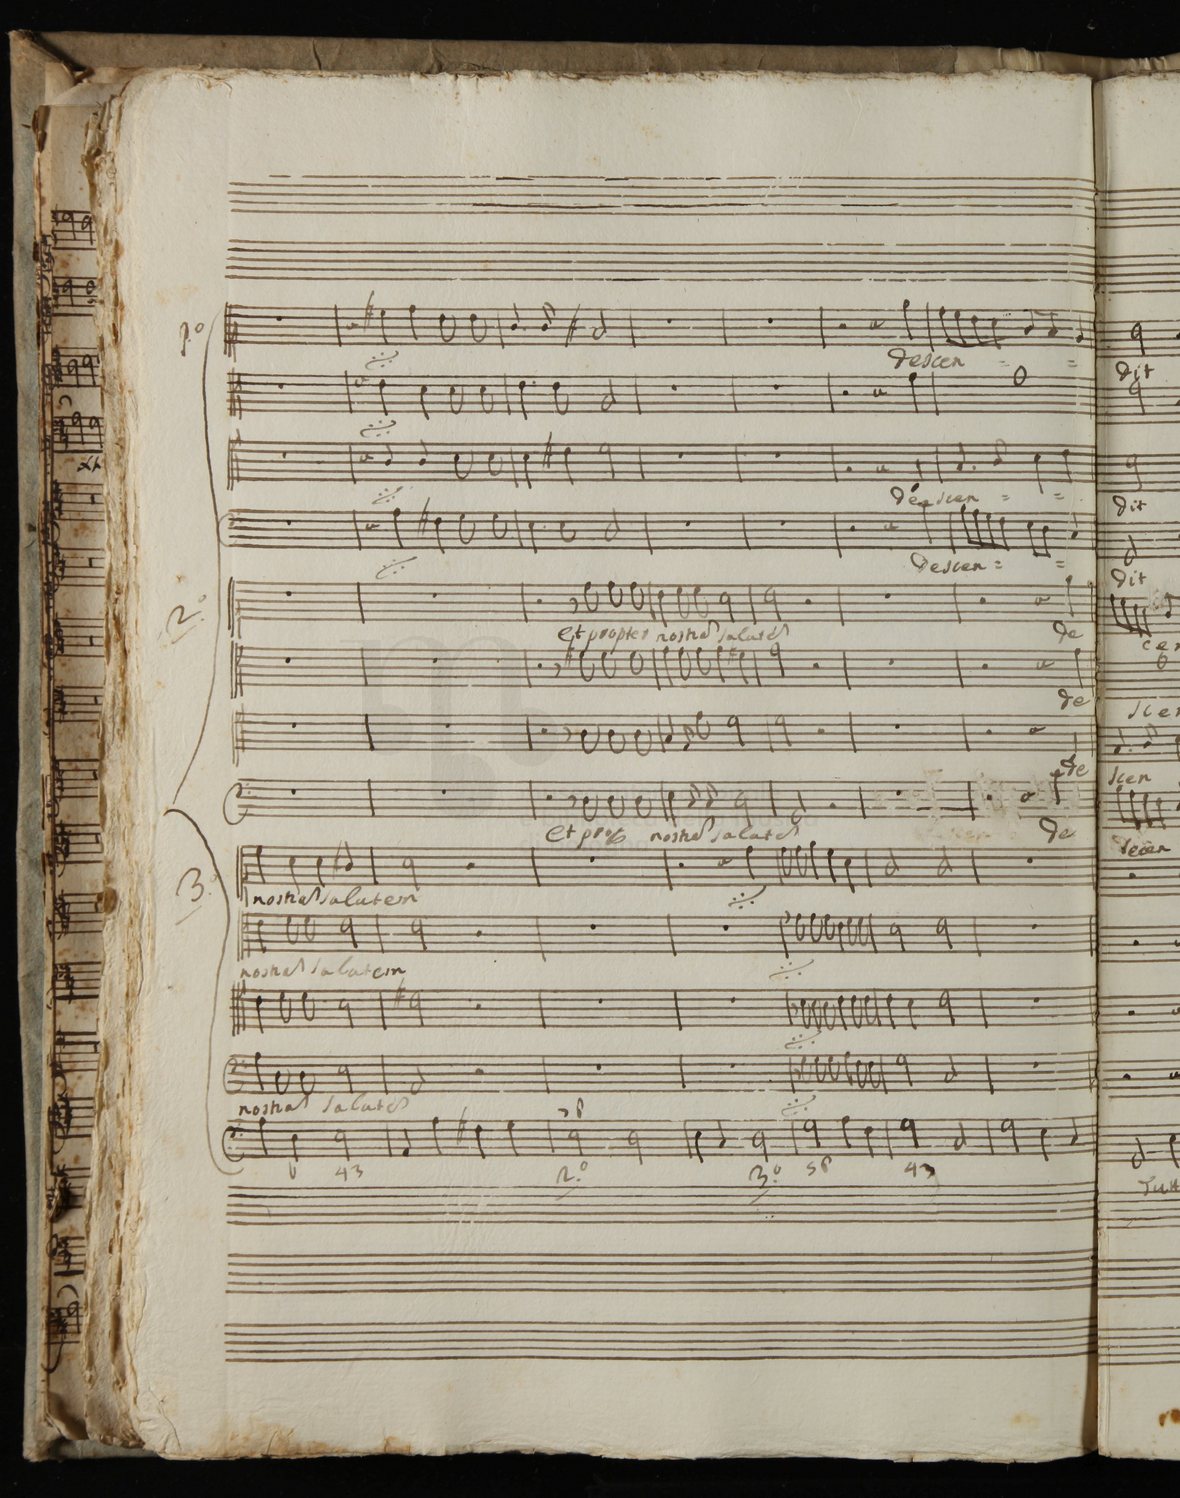 1º
descen = =
dit
descen = =
dit
descen = =
dit
2º
et propter nostra salute
de
cen
de
scen
de
scen
et prop nostra salute
de
scen
3º
nostra salutem
nostra salutem
nostra salute
6 43 2º 3º 58 43